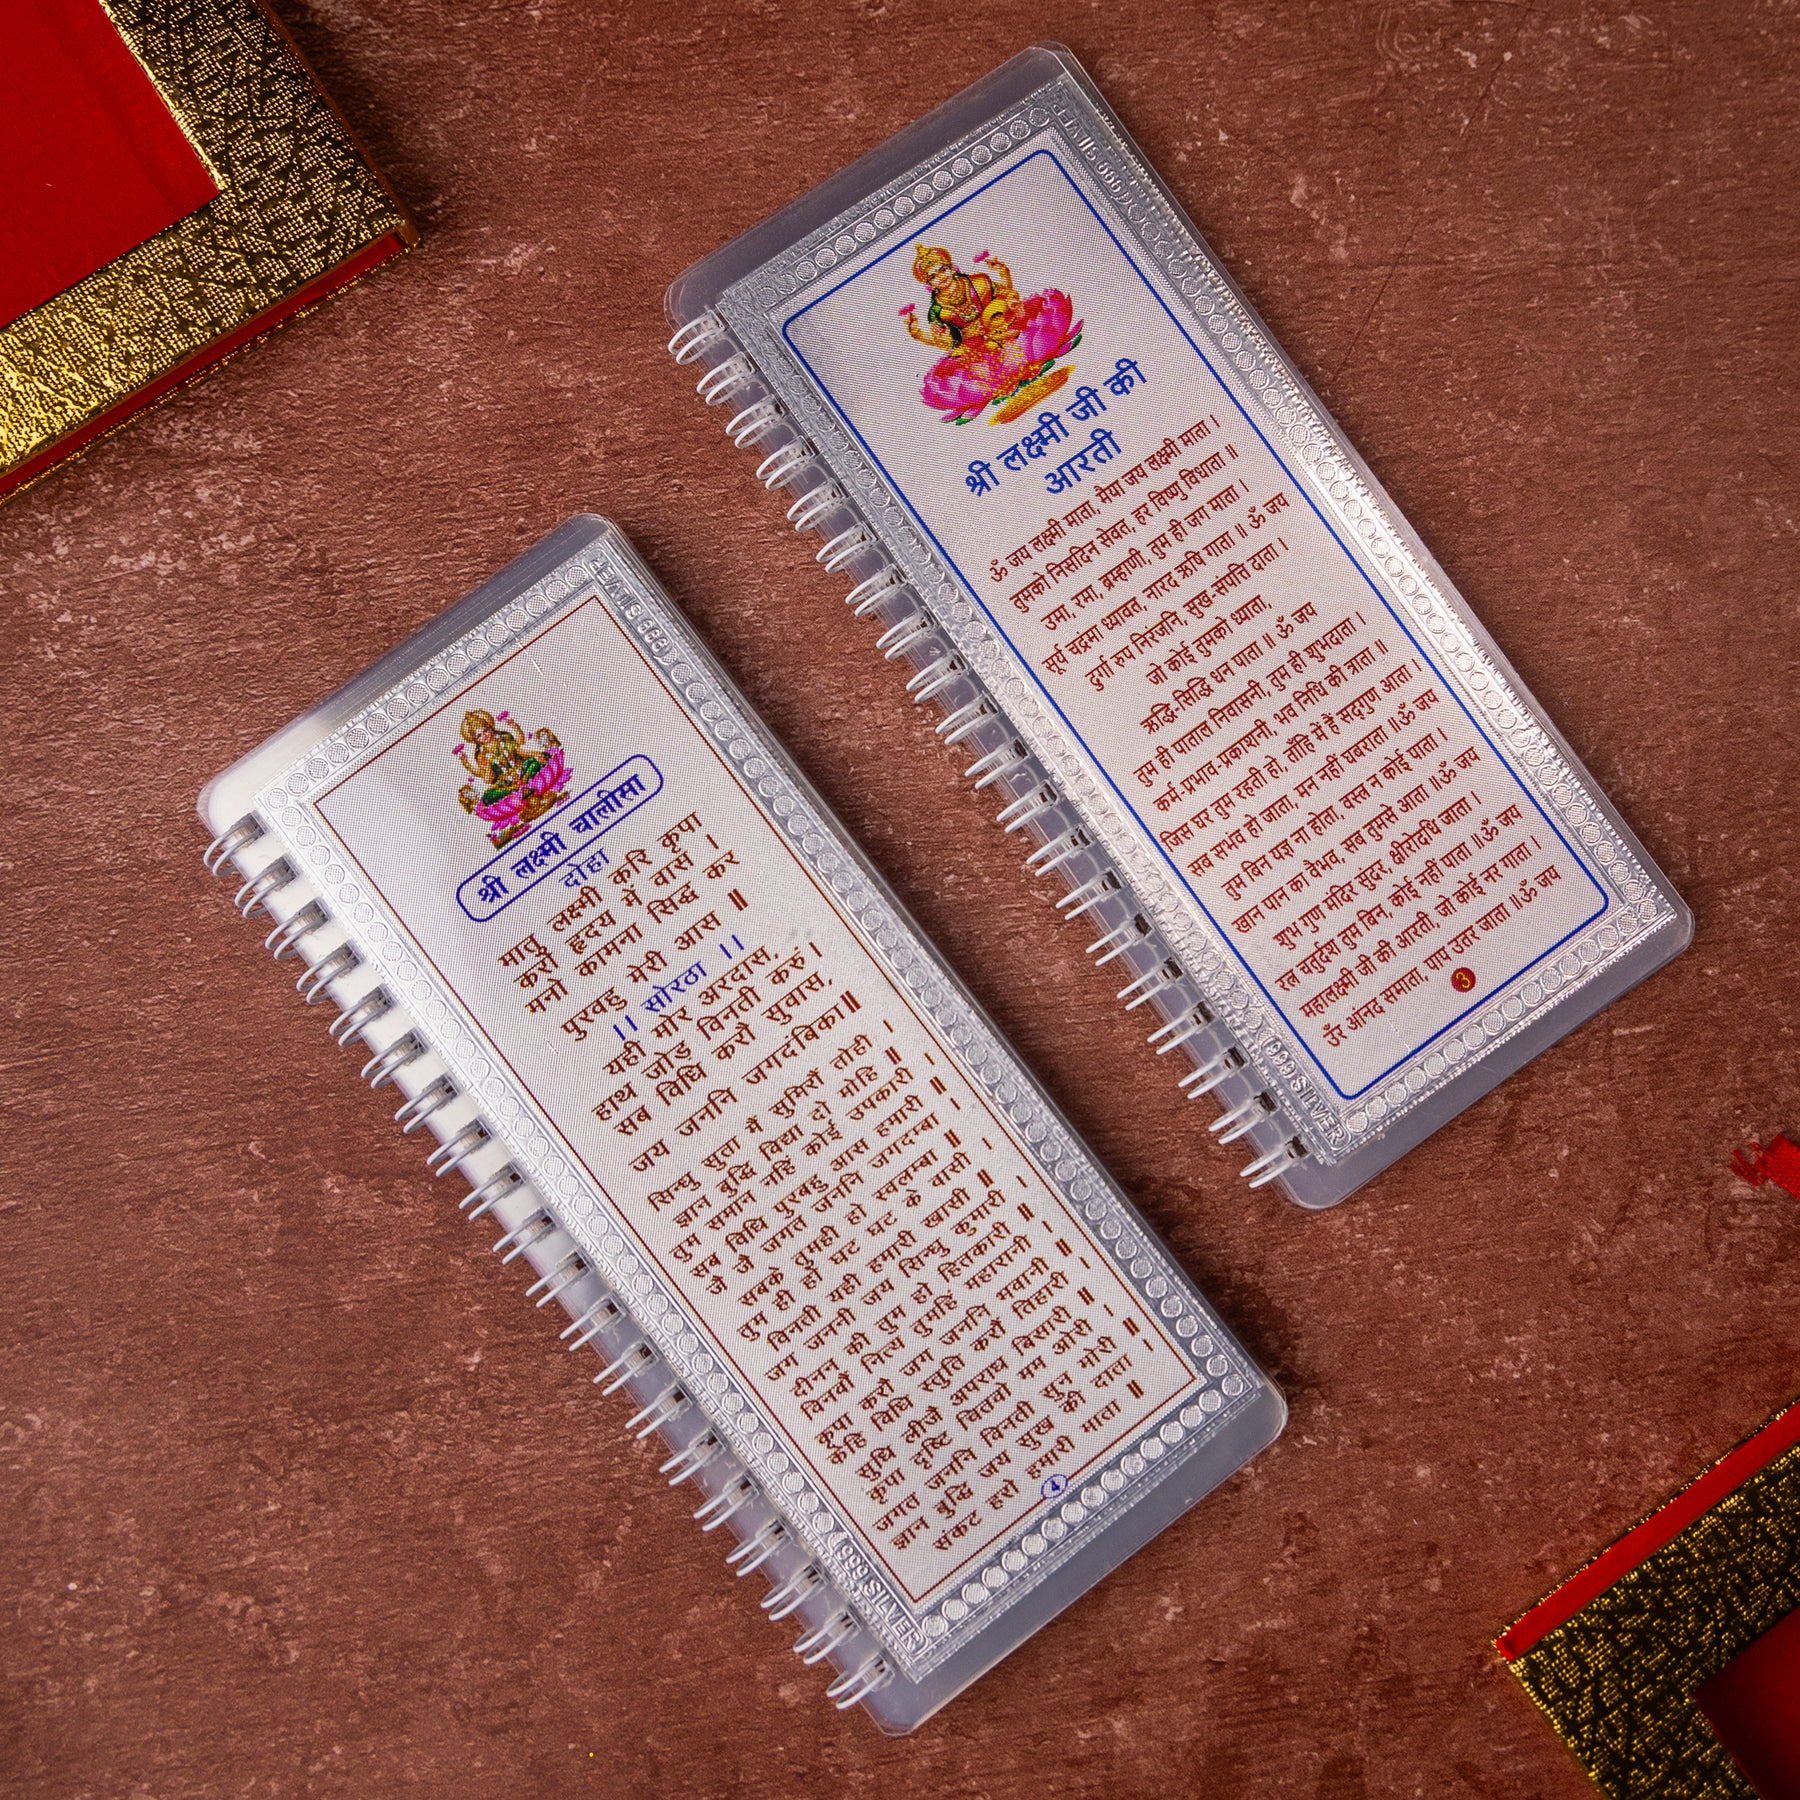 श्री लक्ष्मी चालीसा
दोहा
मातु लक्ष्मी करि कृपा
करो हृदय में वास ।
मनो कामना सिद्ध कर
पुरवहु मेरी आस ॥
।। सोरठा ।।
यही मोर अरदास,
हाथ जोड़ विनती करुं ।
सब विधि करौ सुवास,
जय जननि जगदंबिका॥
सिन्धु सुता मैं सुमिरौं तोही ।
ज्ञान बुद्धि विद्या दो मोहि ॥
तुम समान नहिं कोई उपकारी ।
सब विधि पुरवहु आस हमारी ॥
जै जै जगत जननि जगदम्बा ।
सबके तुमही हो स्वलम्बा ॥
तुम ही हो घट घट के वासी ।
विनती यही हमारी खासी ॥
जग जननी जय सिन्धु कुमारी ।
दीनन की तुम हो हितकारी ॥
विनवौं नित्य तुमहिं महारानी ।
कृपा करौ जग जननि भवानी ॥
केहि विधि स्तुति करौं तिहारी ।
सुधि लीजै अपराध बिसारी ॥
कृपा दृष्टि चितवो मम ओरी ।
जगत जननि विनती सुन मोरी ॥
ज्ञान बुद्धि जय सुख की दाता ।
संकट हरो हमारी माता ॥
4
999 SILVER
999 SILVER
श्री लक्ष्मी जी की
आरती
ॐ जय लक्ष्मी माता, मैया जय लक्ष्मी माता ।
तुमको निसदिन सेवत, हर विष्णु विधाता ॥
उमा, रमा, ब्रम्हाणी, तुम ही जग माता ।
सूर्य चद्रंमा ध्यावत, नारद ऋषि गाता ॥ ॐ जय
दुर्गा रुप निरंजनि, सुख-संपत्ति दाता ।
जो कोई तुमको ध्याता,
ऋद्धि-सिद्धि धन पाता ॥ ॐ जय
तुम ही पाताल निवासनी, तुम ही शुभदाता ।
कर्म-प्रभाव-प्रकाशनी, भव निधि की त्राता ॥
जिस घर तुम रहती हो, ताँहि में हैं सद्‌गुण आता ।
सब सभंव हो जाता, मन नहीं घबराता ॥ॐ जय
तुम बिन यज्ञ ना होता, वस्त्र न कोई पाता ।
खान पान का वैभव, सब तुमसे आता ॥ॐ जय
शुभ गुण मंदिर सुंदर, क्षीरोदधि जाता ।
रत्न चतुर्दश तुम बिन, कोई नहीं पाता ॥ॐ जय
महालक्ष्मी जी की आरती, जो कोई नर गाता ।
उँर आंनद समाता, पाप उतर जाता ॥ॐ जय
3
999 SILVER
999 SILVER